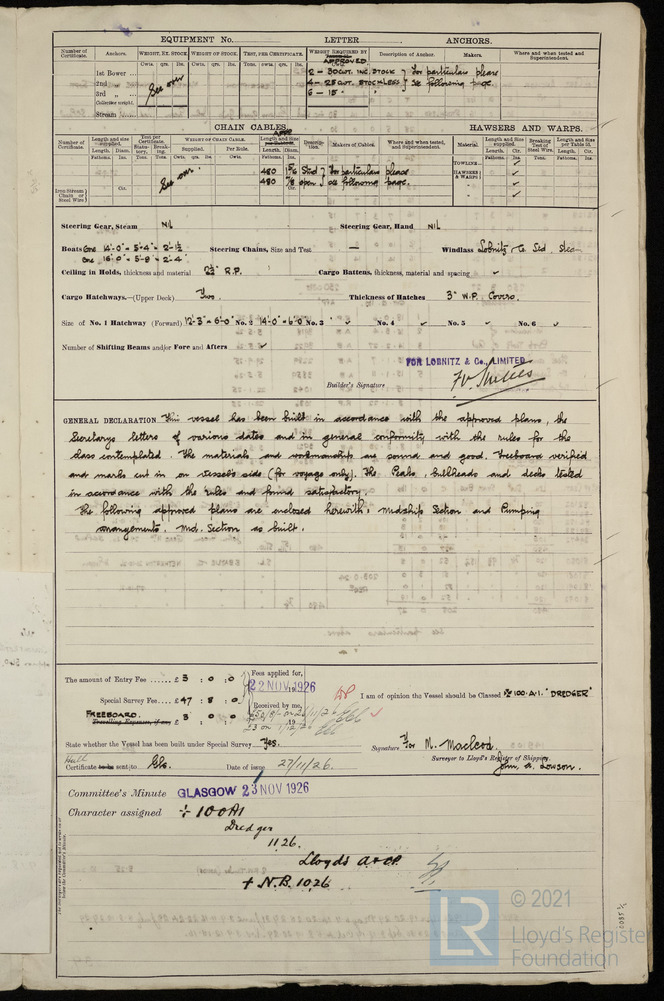 EQUIPMENT No. LETTER ANCHORS.
Number of Certificate. Anchors. WEIGHT, EX. STOCK. WEIGHT OF STOCK. TEST, PER CERTIFICATE. WEIGHT REQUIRED BY APPROVED. Description of Anchor. Makers. Where and when tested and Superintendent.
Cwts. qrs. lbs. Cwts. qrs. lbs. Tons. cwts. qrs. lbs. Cwts.
1st Bower ... See over 2 - 30 cwt. INC. STOCK } For particulars please
2nd " 4 - 25 cwt. STOCKLESS } see following page.
3rd " 6 - 15 "
Collective weight.
Stream
CHAIN CABLES. HAWSERS AND WARPS.
Number of Certificate. Length and size supplied. Test per Certificate. WEIGHT OF CHAIN CABLE. Length and size Description. Makers of Cables. Where and when tested, and Superintendent. Material. Length and size supplied. Breaking Test of Steel Wire. Length and size per Table 53.
Fathoms. Diam. Supplied. Per Rule. Fathoms. Length. Diam. Fathoms. Cir. Tons. Fathoms. Ins.
See over 480 1 5/16 Stud } For particulars please TOWLINE
480 7/8 open } see following page. HAWSERS & WARPS
Iron Stream Chain or Steel Wire
Steering Gear, Steam Nil Steering Gear, Hand Nil
Boats One 14'-0" × 5'-4" × 2'-1½ Steering Chains, Size and Test — Windlass Lobnitz & Co Ltd Steam
One 16'-0" × 5'-8" × 2'-4"
Ceiling in Holds, thickness and material 2½" R.P. Cargo Battens, thickness, material and spacing
Cargo Hatchways.—(Upper Deck) Two. Thickness of Hatches 3" W.P. Covers.
Size of No. 1 Hatchway (Forward) 12'-3" × 6'-0" No. 2 14'-0" × 6'-0 No. 3 No. 4 No. 5 No. 6
Number of Shifting Beams and/or Fore and Afters
FOR LOBNITZ & Co., LIMITED
Builder's Signature
GENERAL DECLARATION This vessel has been built in accordance with the approved plans, the
Secretarys letters of various dates and in general conformity with the rules for the
class contemplated. The materials and workmanship are sound and good. Freeboard verified
and marks cut in on vessel's side (for voyage only). The Peaks, bulkheads and decks tested
in accordance with the rules and found satisfactory.
The following approved plans are enclosed herewith: Midship Section and Pumping
arrangements. Mid. Section as built.
The amount of Entry Fee ..... £ 3 : 0 : 0 Fees applied for,
22 NOV 1926
Special Survey Fee .... £ 47 : 8 : 0 Received by me, I am of opinion the Vessel should be Classed ✠ 100·A·1. "DREDGER"
FREEBOARD.
Travelling Expenses, if any, £ 3 : 0 : 0 £3 on 1/12/26
State whether the Vessel has been built under Special Survey Yes. Signature For M. Macleod.
Surveyor to Lloyd's Register of Shipping.
Hull
Certificate to be sent to Glo. Date of issue 27/11/26. John A. Lowson.
Committee's Minute GLASGOW 23 NOV 1926
Character assigned ✠ 100A1
Dredger
11.26.
Lloyd's A & CP.
✠ N.B. 10.26
LR
© 2021
Lloyd's Register
Foundation